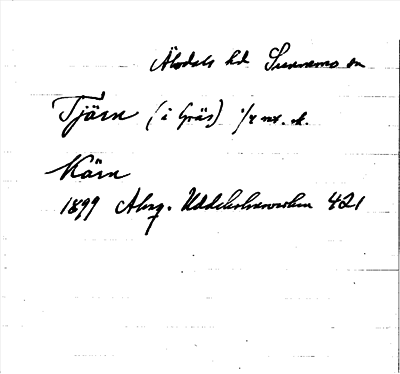 Älvdals hd Sunnemo sn
Tjärn (i Gräs) 1/4 mt. sk.
Kärn
1899 Almq. Uddeholmsverken 421